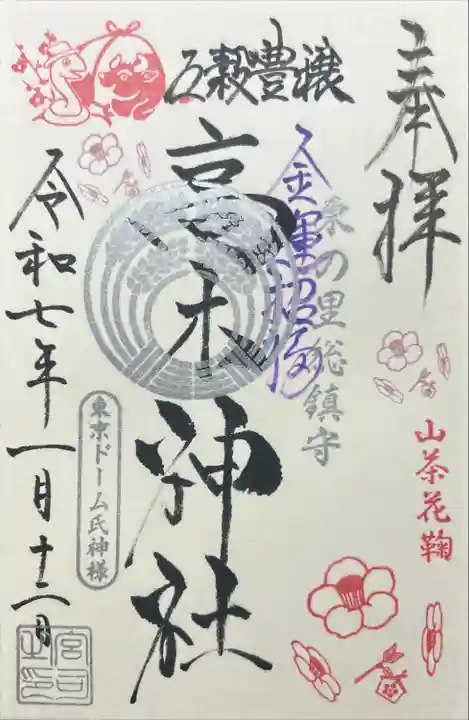 奉拝
五穀豊穣
金運招福
森の里総鎮守
高木神社
令和七年一月十二日
東京ドーム氏神様
山茶花鞠